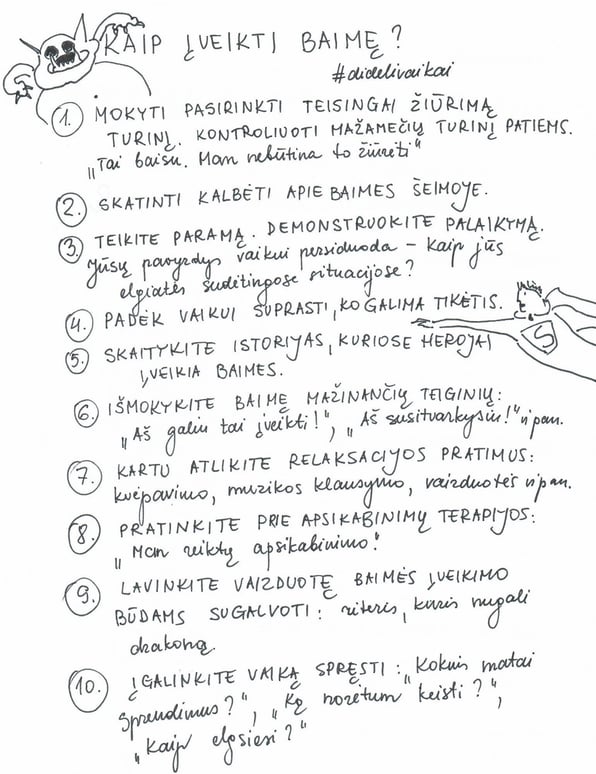 KAIP ĮVEIKTI BAIMĘ?
#didelivaikai
1. MOKYTI PASIRINKTI TEISINGAI ŽIŪRIMĄ
TURINĮ. KONTROLIUOTI MAŽAMEČIŲ TURINĮ PATIEMS.
„Tai baisu. Man nebūtina to žiūrėti“
2. SKATINTI KALBĖTI APIE BAIMES ŠEIMOJE.
3. TEIKITE PARAMĄ. DEMONSTRUOKITE PALAIKYMĄ.
Jūsų pavyzdys vaikui persiduoda – kaip jūs
elgiatės sudėtingose situacijose?
4. PADĖK VAIKUI SUPRASTI, KO GALIMA TIKĖTIS.
5. SKAITYKITE ISTORIJAS, KURIOSE HEROJAI
ĮVEIKIA BAIMES.
S
6. IŠMOKYKITE BAIMĘ MAŽINANČIŲ TEIGINIŲ:
„Aš galiu tai įveikti!“, „Aš susitvarkysiu!“ ir pan.
7. KARTU ATLIKITE RELAKSACIJOS PRATIMUS:
kvėpavimo, muzikos klausymo, vaizduotės ir pan.
8. PRATINKITE PRIE APSIKABINIMŲ TERAPIJOS:
„Man reiktų apsikabinimo“.
9. LAVINKITE VAIZDUOTĘ BAIMĖS ĮVEIKIMO
BŪDAMS SUGALVOTI: riteris, kuris nugali
drakoną.
10. ĮGALINKITE VAIKĄ SPRĘSTI: „Kokius matai
sprendimus?“, „Ką norėtum keisti?“,
„Kaip elgsiesi?“